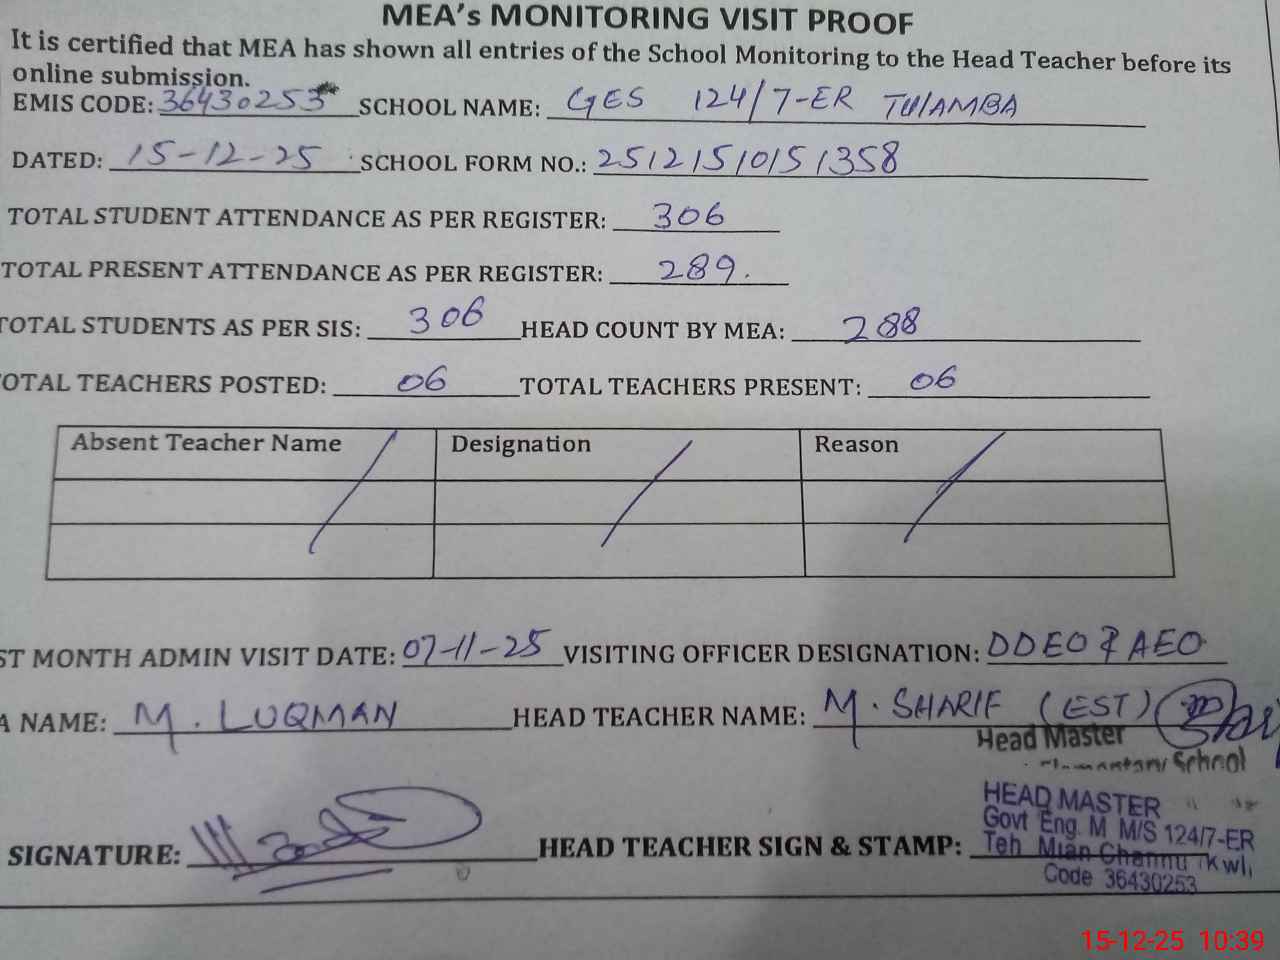 MEA's MONITORING VISIT PROOF
It is certified that MEA has shown all entries of the School Monitoring to the Head Teacher before its
online submission.
EMIS CODE: 36430253 SCHOOL NAME: GES 124/7-ER TULAMBA
DATED: 15-12-25 SCHOOL FORM NO.: 25121510151358
TOTAL STUDENT ATTENDANCE AS PER REGISTER: 306
TOTAL PRESENT ATTENDANCE AS PER REGISTER: 289.
TOTAL STUDENTS AS PER SIS: 306 HEAD COUNT BY MEA: 288
OTAL TEACHERS POSTED: 06 TOTAL TEACHERS PRESENT: 06
Absent Teacher Name Designation Reason
ST MONTH ADMIN VISIT DATE: 07-11-25 VISITING OFFICER DESIGNATION: DDEO & AEO
A NAME: M. LUQMAN HEAD TEACHER NAME: M. SHARIF (EST)
Head Master
Elementary School
SIGNATURE: HEAD TEACHER SIGN & STAMP:
HEAD MASTER
Govt Eng. M M/S 124/7-ER
Teh Mian Channu Kwl,
Code 36430253
15-12-25 10:39